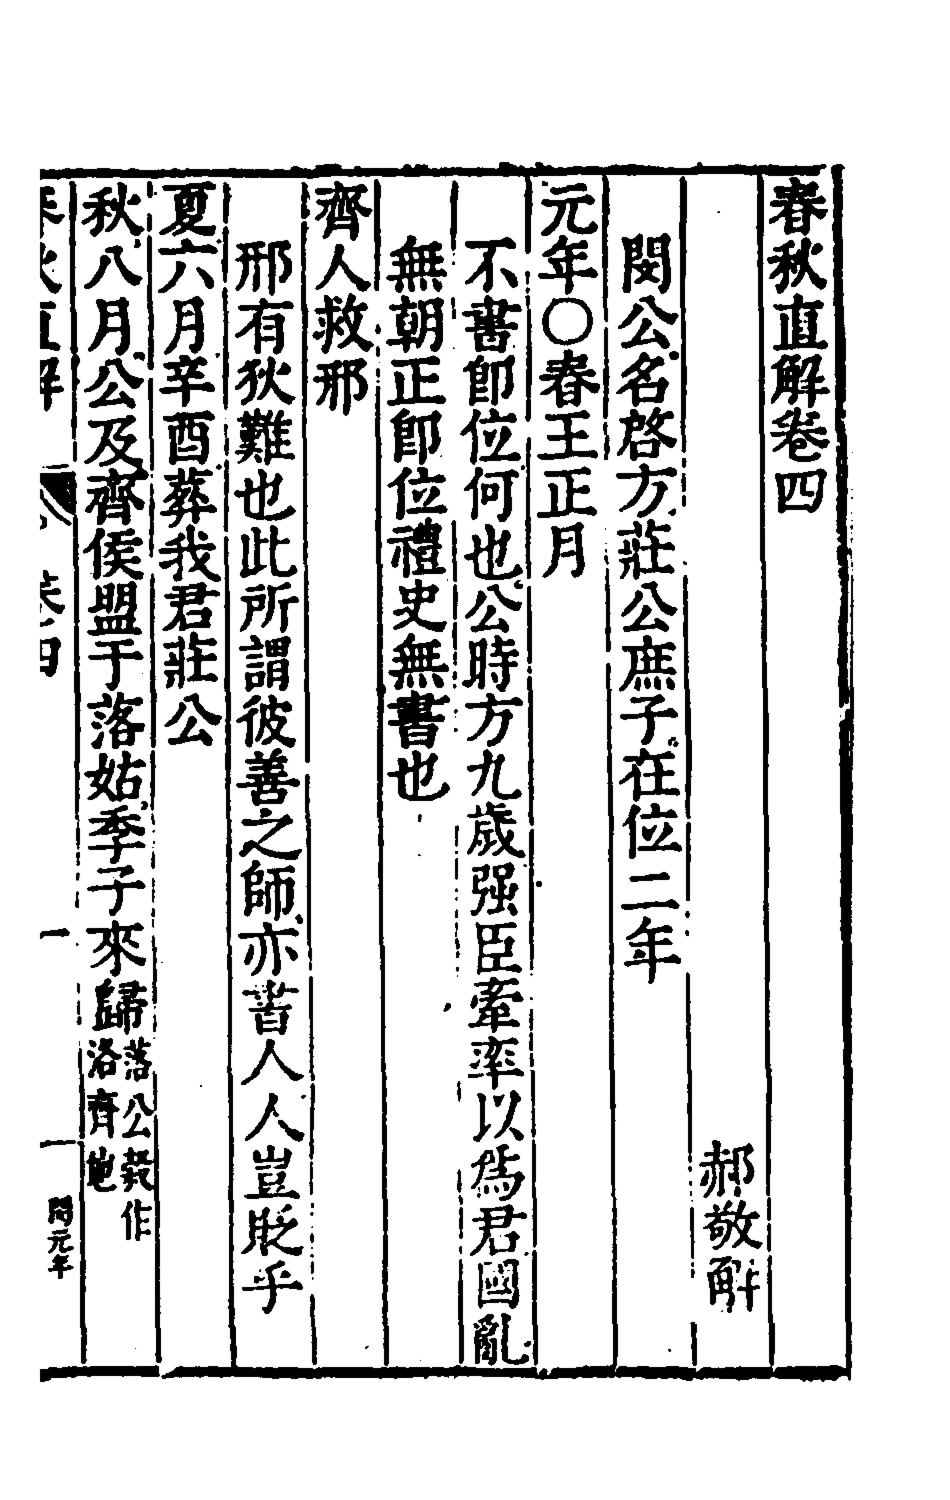 春秋直解卷四
郝敬解
閔公名啓方莊公庶子在位二年
元年〇春王正月
不書卽位何也公時方九歲强臣牽率以爲君國亂
無朝正卽位禮史無書也
齊人救邢
邢有狄難也此所謂彼善之師亦書人人豈貶乎
夏六月辛酉葬我君莊公
秋八月公及齊侯盟于落姑季子來歸落公穀作
洛齊地
春秋直解 卷四 一 閔元年